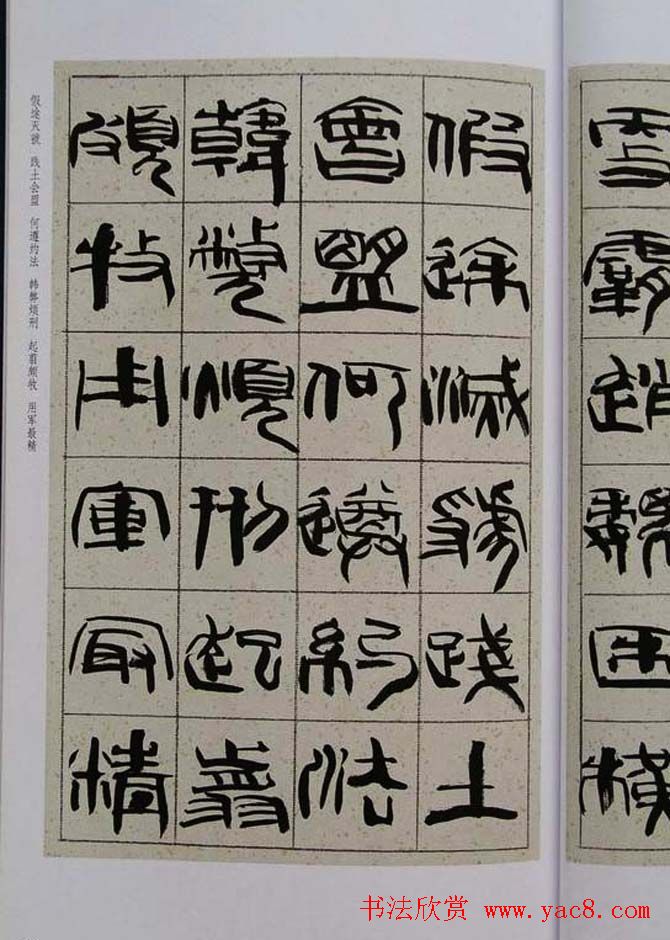 霸趙魏困橫
假途滅虢踐土
會盟何遵約法
韓弊煩刑起翦
頗牧用軍最精
假途灭虢 践土会盟 何遵约法 韩弊烦刑 起翦颇牧 用军最精
书法欣赏 www.yac8.com